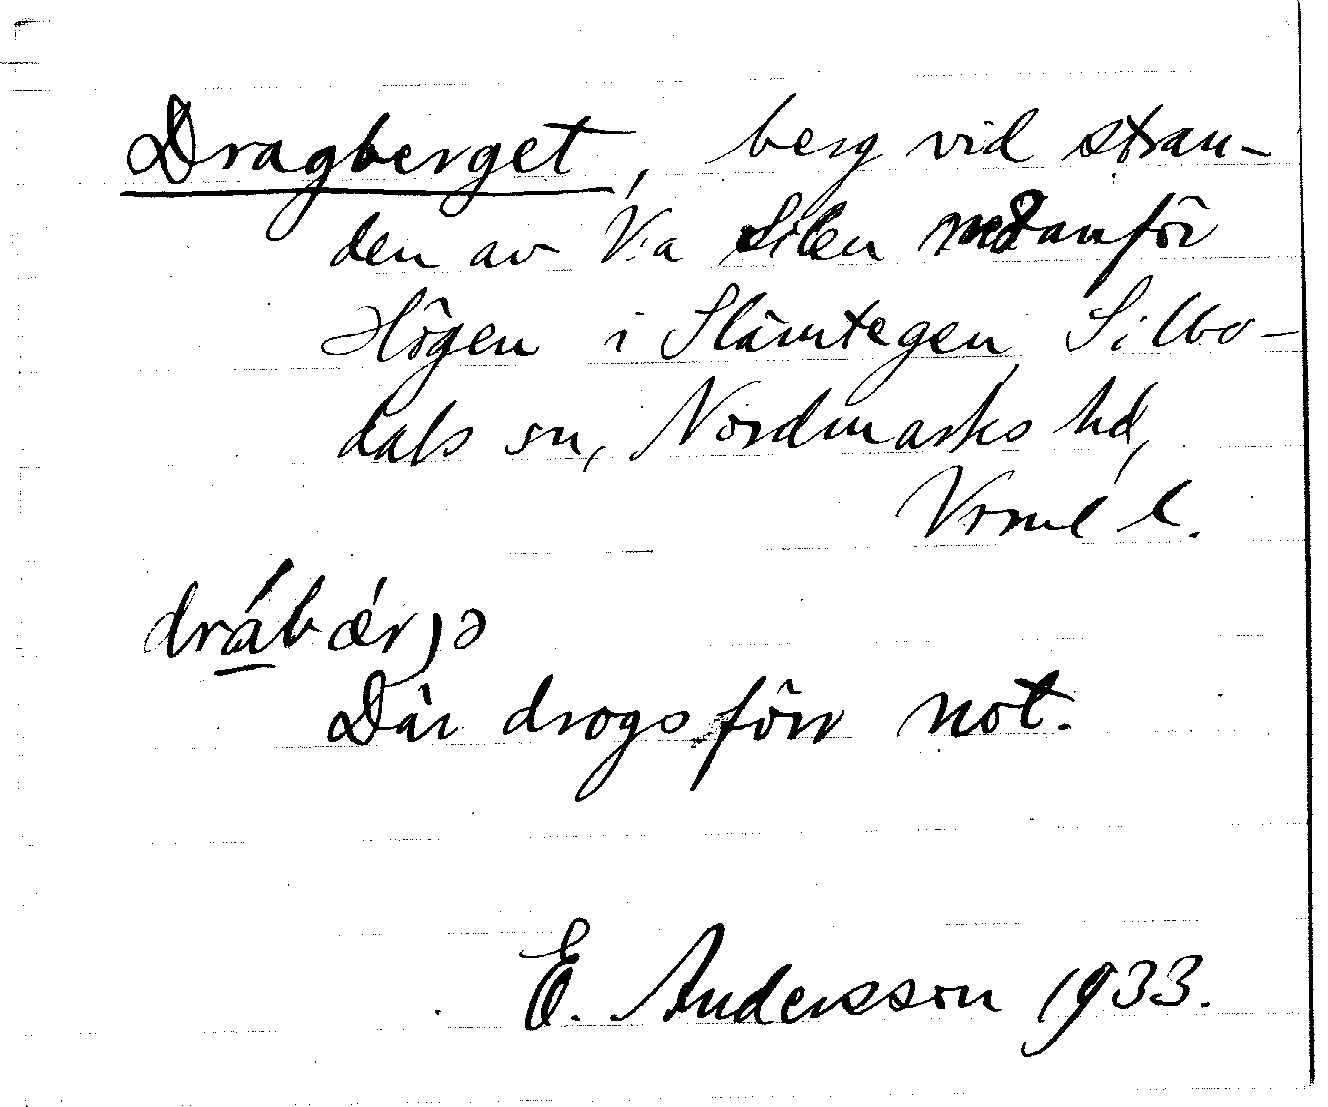 Dragberget, berg vid stran-
den av V:a Silen nedanför
Högen i Slämtegen, Silbo-
dals sn, Nordmarks hd,
Vrml l.
drábǽrjə
Där drogs förr not.
E. Andersson 1933.